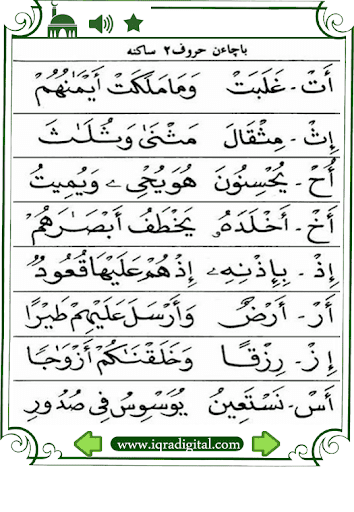 باچاءن حروف٢ ساكنه
أَتْ - غَلَبَتْ وَمَا مَلَكَتْ أَيْمَٰنُهُمْ
إِثْ - مِثْقَالَ مَثْنَىٰ وَثُلَٰثَ
أُحْ - يُحْسِنُونَ هُوَ يُحْيِۦ وَيُمِيتُ
أَخْ - أَخْلَدَهُۥ يَخْطَفُ أَبْصَٰرَهُمْ
إِذْ - بِإِذْنِهِۦ إِذْ هُمْ عَلَيْهَا قُعُودٌ
أَرْ - أَرْضٌ وَأَرْسَلَ عَلَيْهِمْ طَيْرًا
إِزْ - رِزْقًا وَخَلَقْنَٰكُمْ أَزْوَٰجًا
أَسْ - نَسْتَعِينُ يُوَسْوِسُ فِى صُدُورِ
www.iqradigital.com